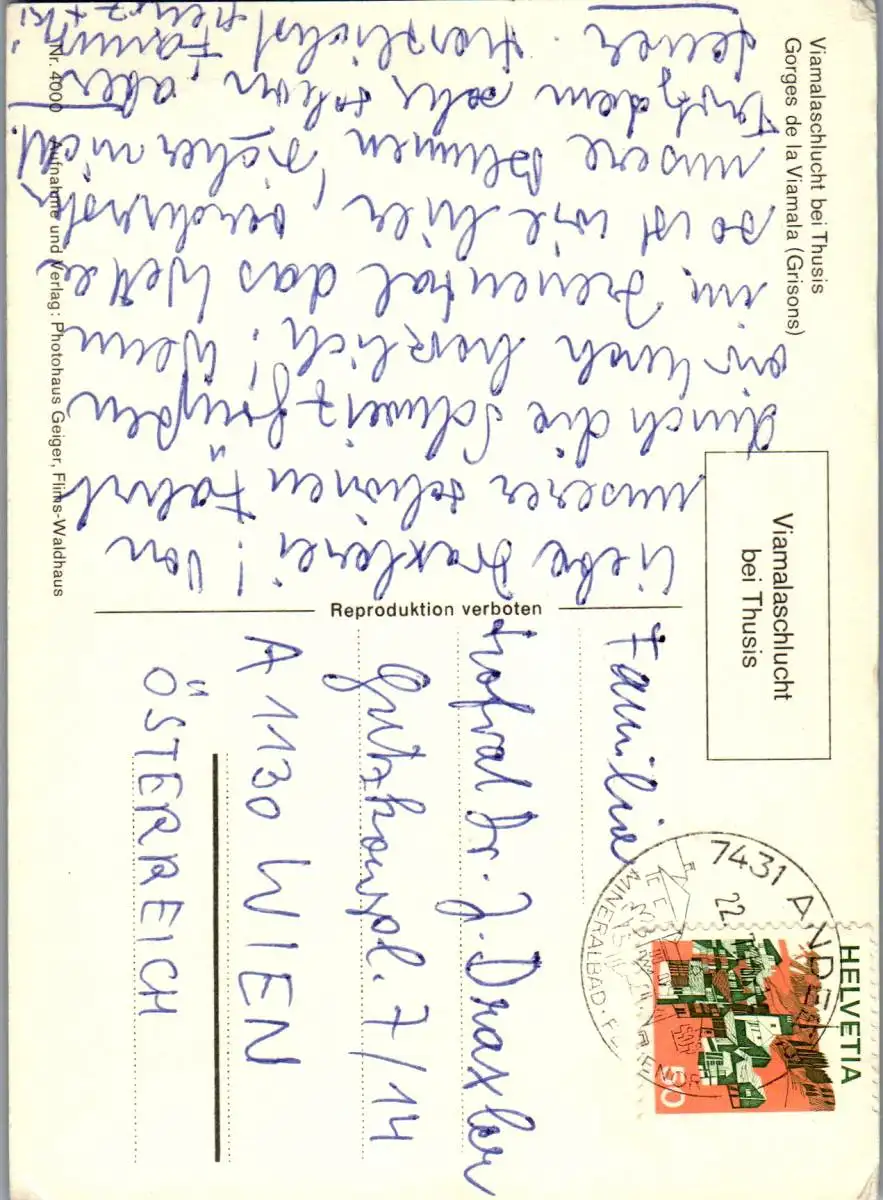 Viamalaschlucht bei Thusis
Gorges de la Viamala (Grisons)
Liebe Draxlerei! Von
unserer schönen Fahrt
durch die Schweiz grüßen
wir Euch herzlich! Wenn
im Ziental das Wetter
so ist wie hier, verdursten
unsere Blumen sicher nicht!
Trotzdem sehr schön aber
teuer. Herzlichst
Nr. 4000 Aufnahme und Verlag: Photohaus Geiger, Flims-Waldhaus
Reproduktion verboten
Viamalaschlucht
bei Thusis
7431 ANDEER
22.
MINERALBAD
HELVETIA
50
Familie
Hofrat Dr. J. Draxler
Gutzkowpl. 7/14
A 1130 WIEN
ÖSTERREICH